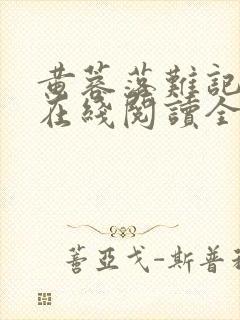 黄蓉落難記
在綫閱讀全
蓍亞戈-斯普